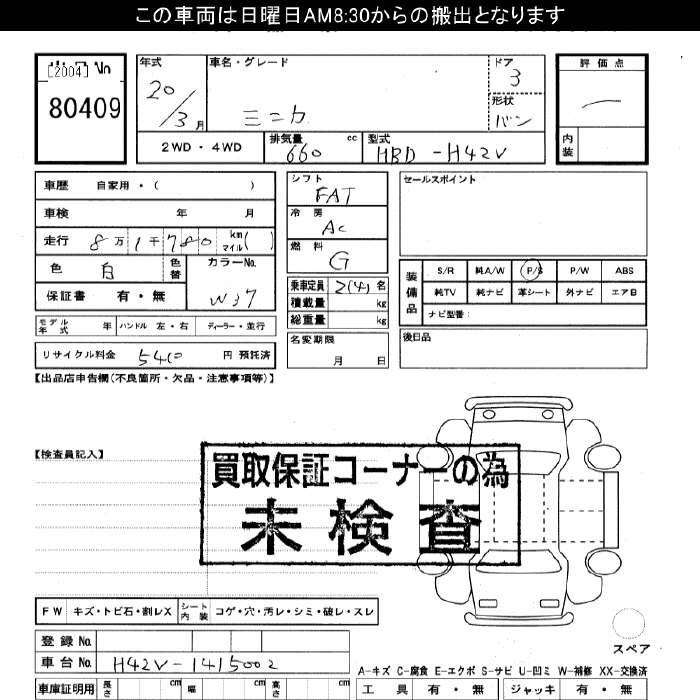 この車両は日曜日AM8:30からの搬出となります
[2004]
80409
年式
20/3月
車名・グレード
ミニカ
ドア
3
形状
バン
評価点
内装
2WD・4WD
排気量 660 cc
型式 HBD-H42V
車歴 自家用・( )
車検 年 月
走行 8万1千780 km マイル( )
色 白 色替
カラーNo. W37
保証書 有・無
モデル年式 年 ハンドル 左・右 ディーラー・並行
リサイクル料金 5410 円 預託済
シフト FAT
冷房 AC
燃料 G
乗車定員 2(4)名
積載量 kg
総重量 kg
名変期限
月 日
セールスポイント
装備品
S/R 純A/W P/S P/W ABS
純TV 純ナビ 革シート 外ナビ エアB
ナビ型番:
後日品
【出品店申告欄(不良箇所・欠品・注意事項等)】
【検査員記入】
買取保証コーナーの為
未検査
FW キズ・トビ石・割レX シート内装 コゲ・穴・汚レ・シミ・破レ・スレ
登録No.
車台No. H42V-1415002
スペア
A-キズ C-腐食 E-エクボ S-サビ U-凹ミ W-補修 XX-交換済
車庫証明用 長さ cm 幅 cm 高さ cm
工具 有・無 ジャッキ 有・無